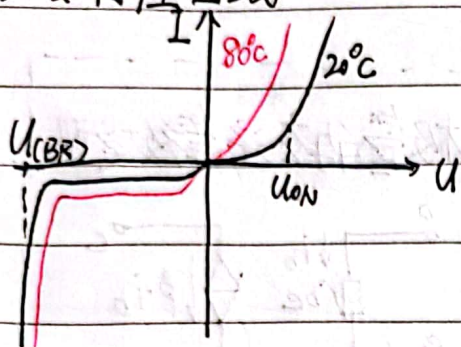 I
80°C
20°C
U(BR)
UON
U